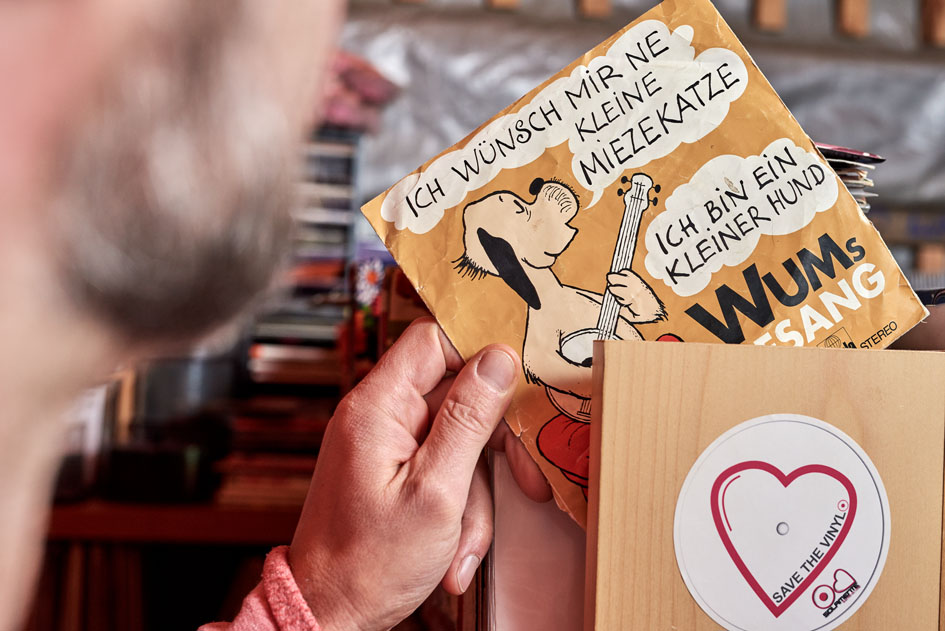 ICH WÜNSCH MIR NE
KLEINE
MIEZEKATZE
ICH BIN EIN
KLEINER HUND
WUMs
ESANG
STEREO
SAVE THE VINYL